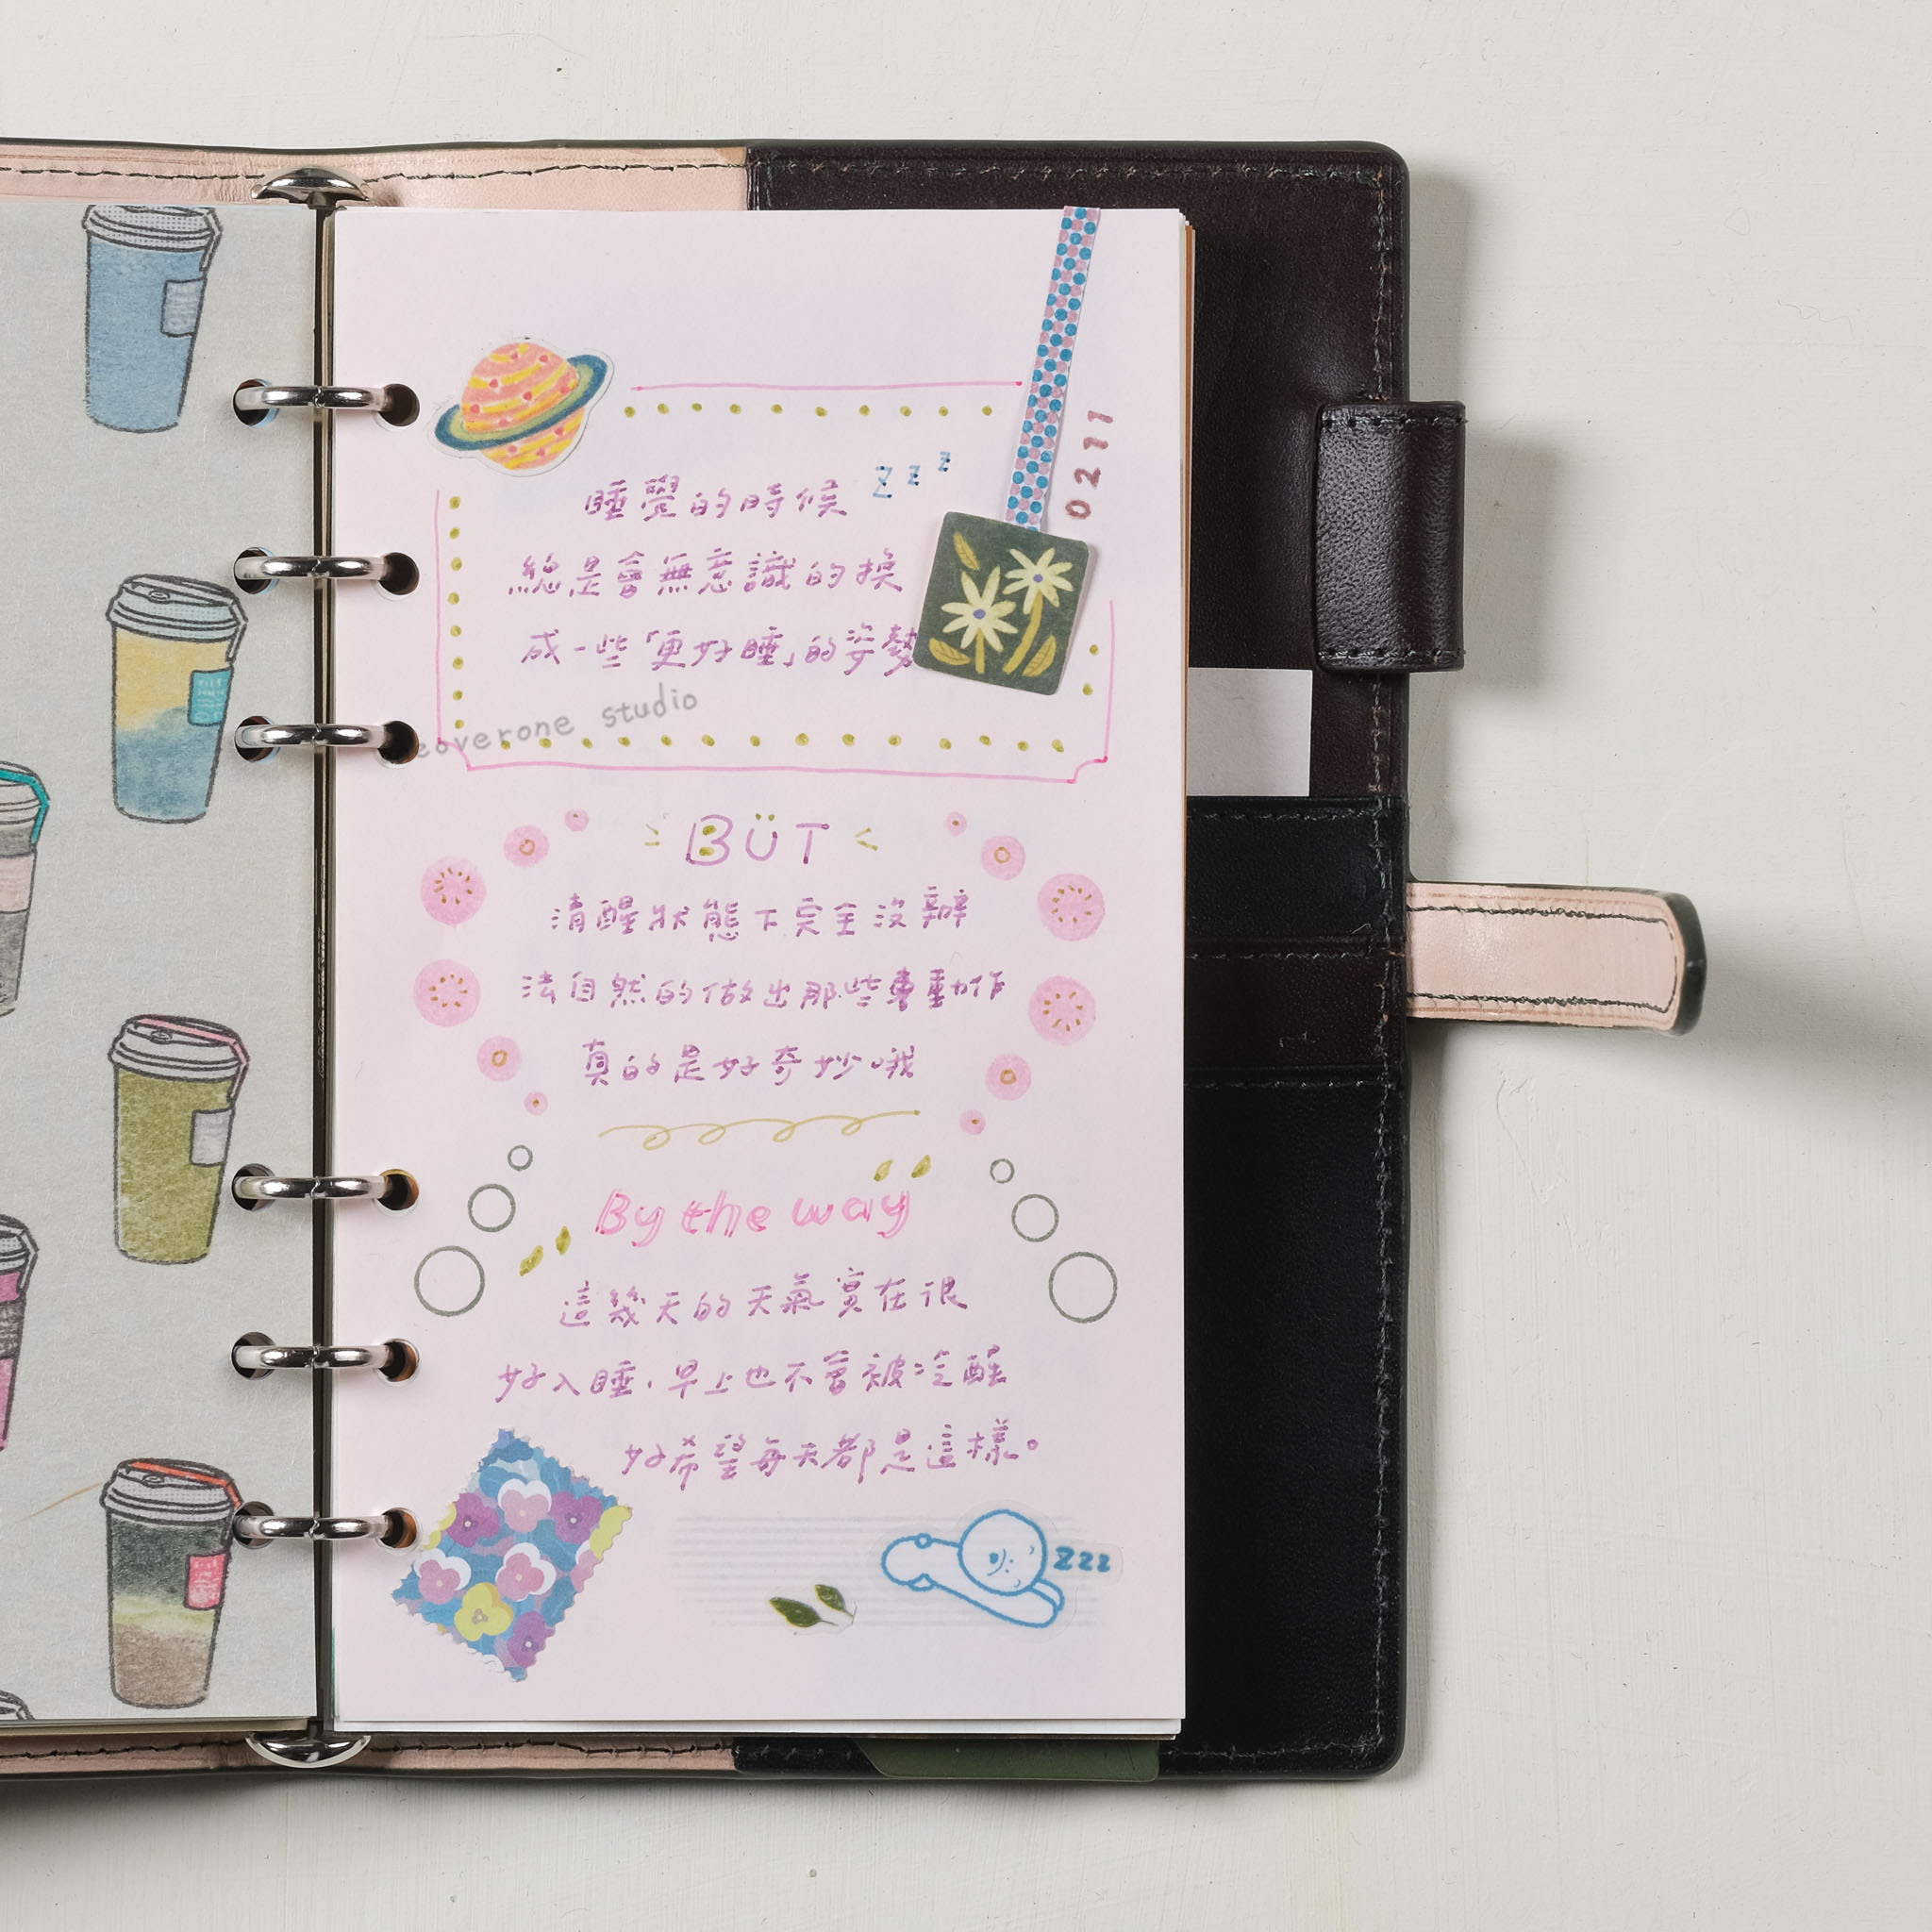 0211
睡覺的時候 z z z
總是會無意識的換
成一些「更好睡」的姿勢
eoverone studio
BÜT
清醒狀態下完全沒辦
法自然的做出那些動作
真的是好奇妙哦
By the way
這幾天的天氣實在很
好入睡,早上也不會被冷醒
好希望每天都是這樣。
zzz